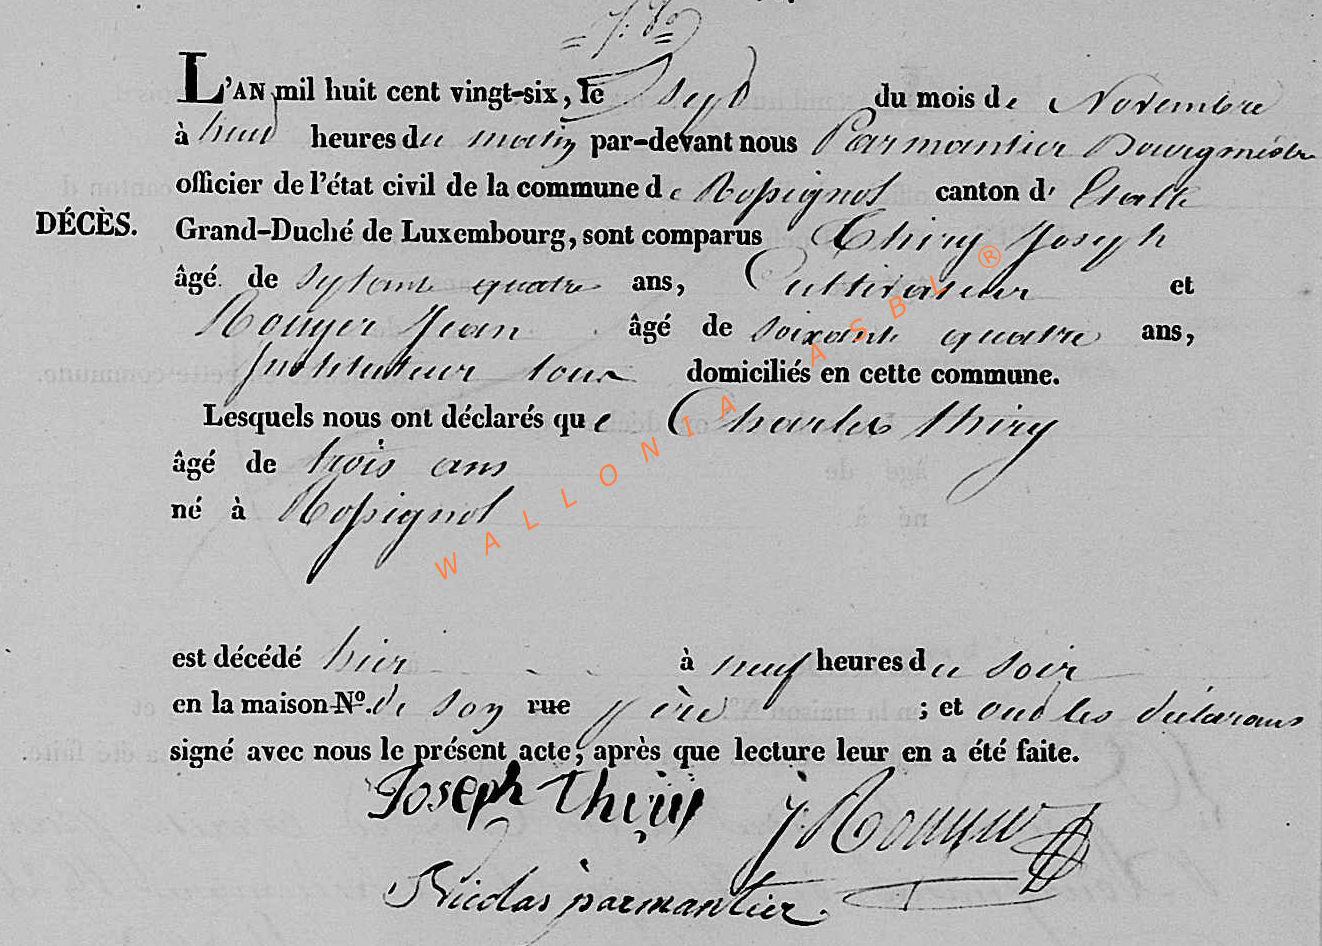 L'AN mil huit cent vingt-six, le sept du mois de Novembre
à huit heures du matin par-devant nous Parmantier Bourgmestre
officier de l'état civil de la commune de Rossignol canton d' Etalle
DÉCÈS. Grand-Duché de Luxembourg, sont comparus Thiry Joseph
âgé de septante quatre ans, Cultivateur et
Rouyer Jean âgé de soixante quatre ans,
Instituteur tous domiciliés en cette commune.
Lesquels nous ont déclarés que Charles thiry
âgé de trois ans
né à Rossignol
WALLONIA ASBL ®
est décédé hier à neuf heures du soir
en la maison Nº. de son rue père ; et ont les déclarans
signé avec nous le présent acte, après que lecture leur en a été faite.
Joseph Thiry J. Rouyer
Nicolas parmantier.